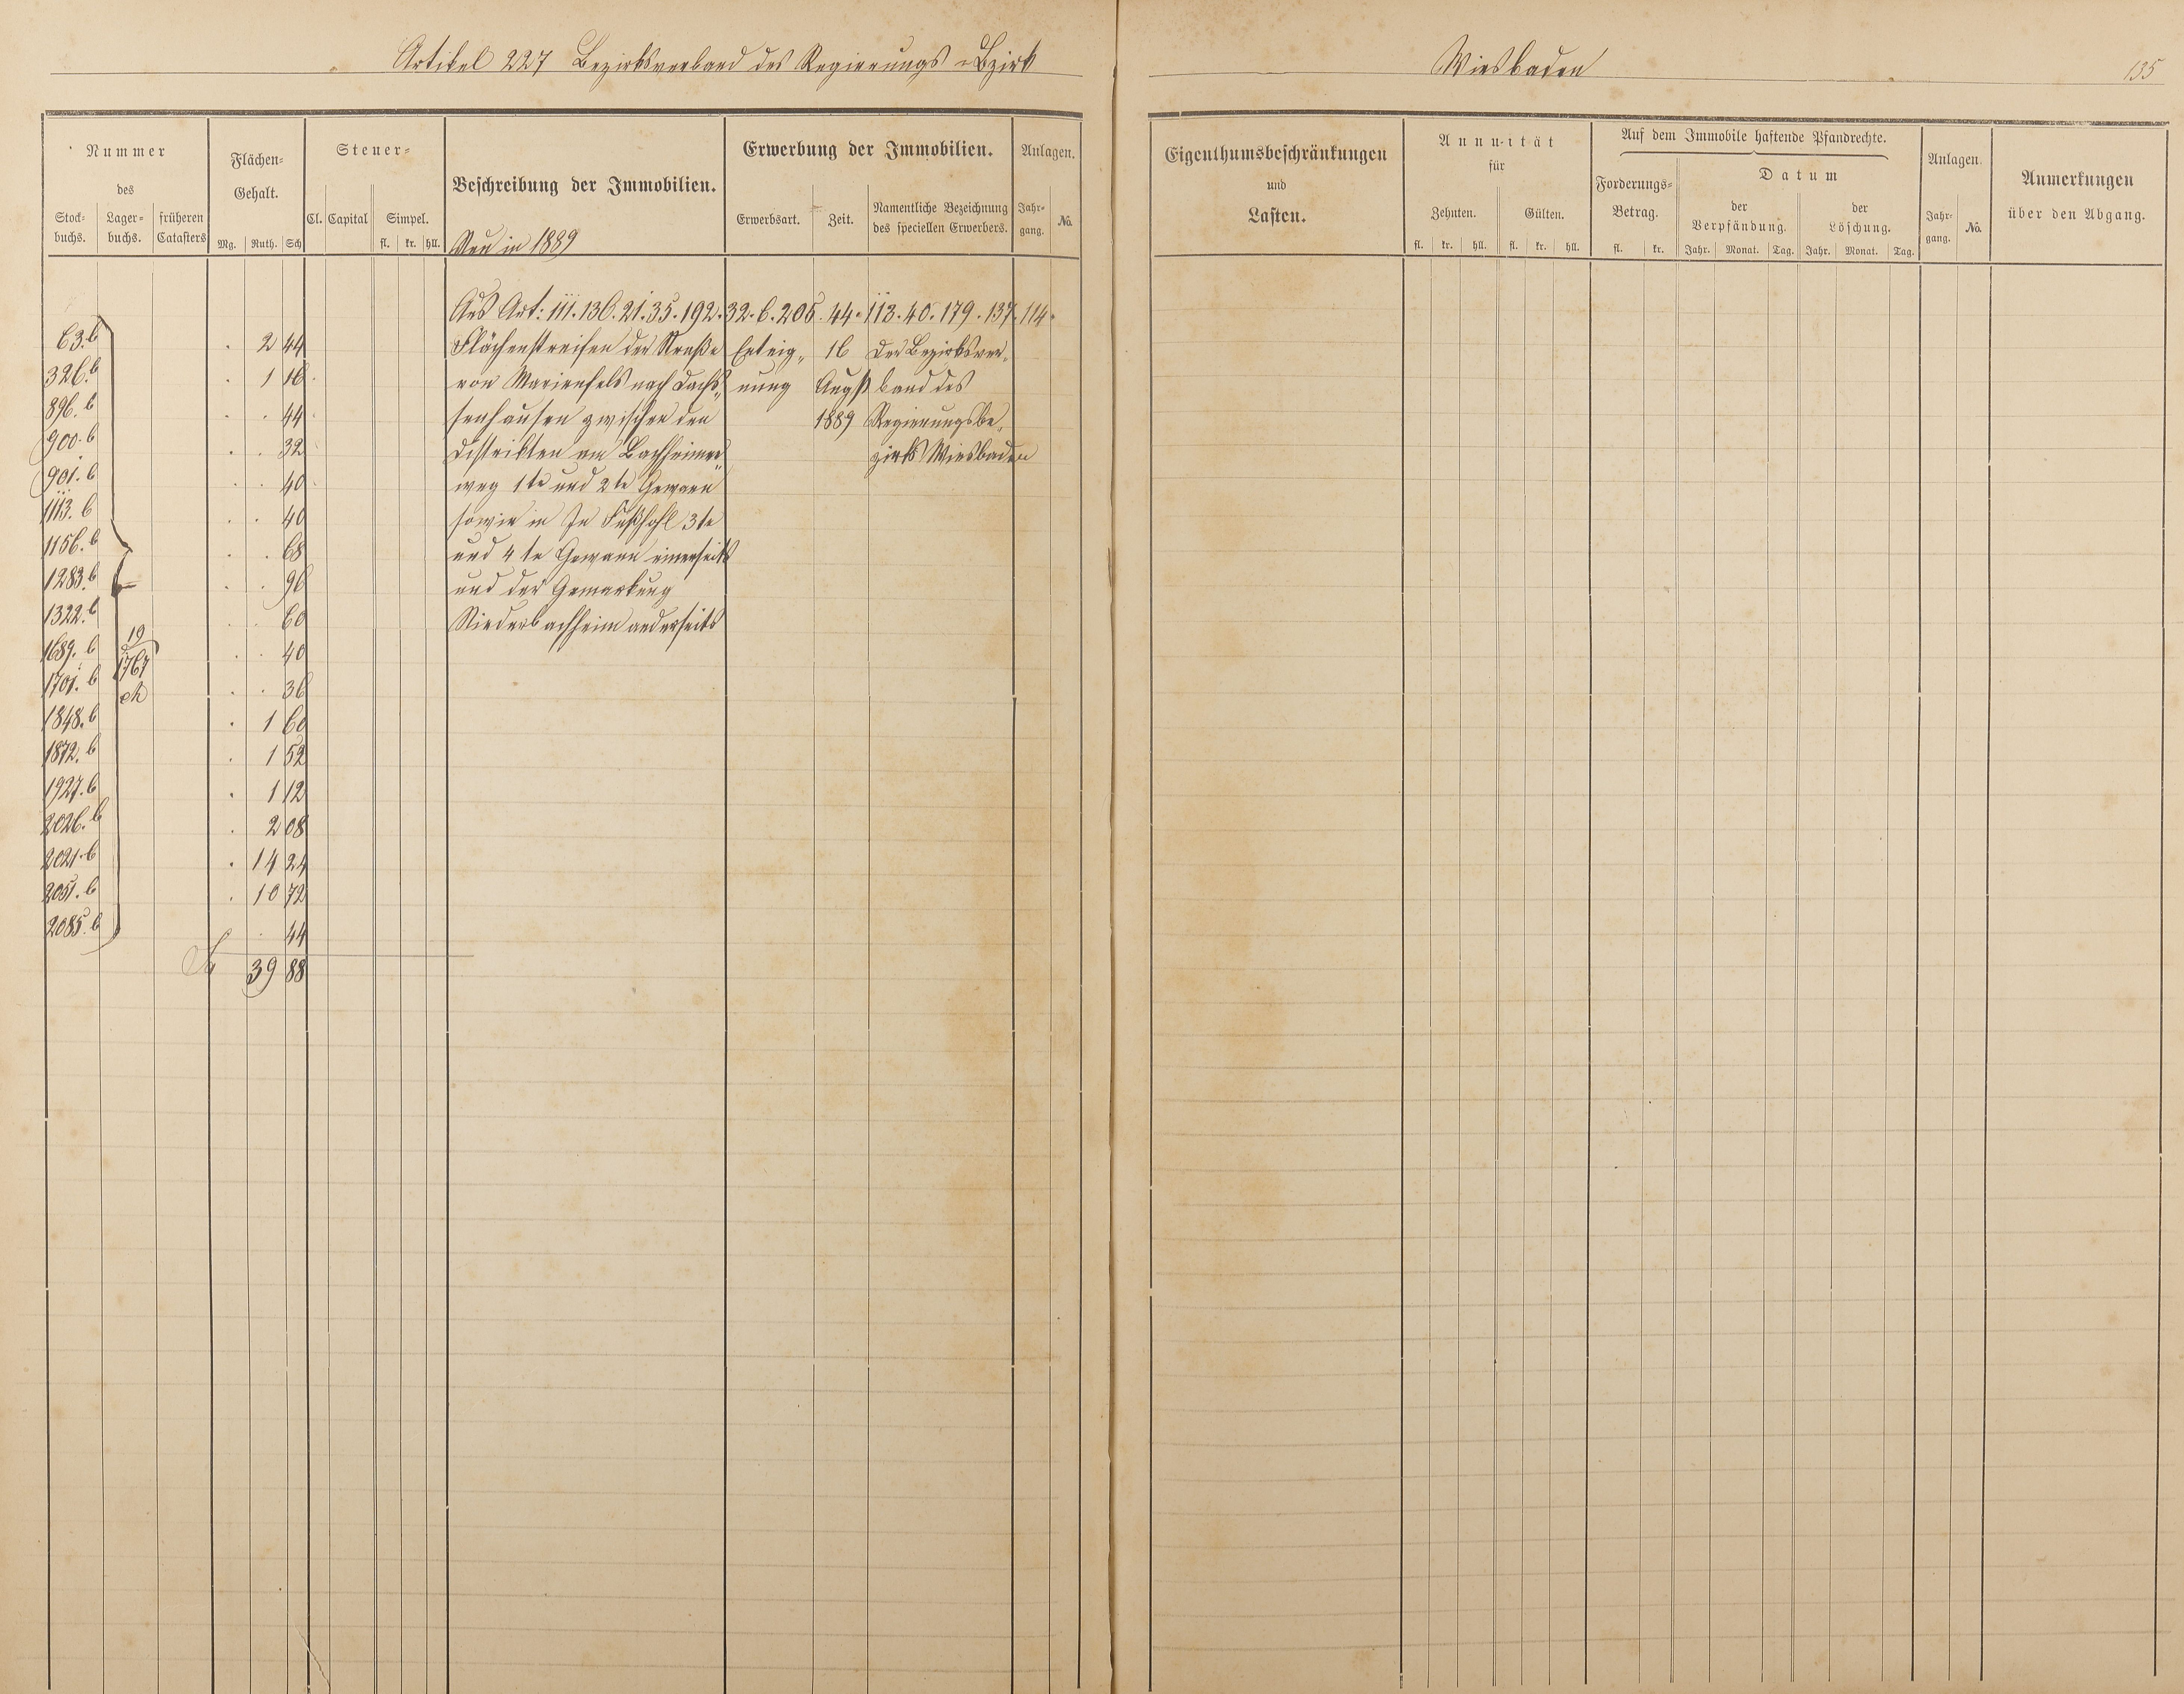 Artikel 227 Bezirksverband des Regierungs-Bzirk Wiesbaden
135
Nummer
des
Stock-
buchs.
Lager-
buchs.
früheren
Catasters
Flächen-
Gehalt.
Mg. Ruth. Sch
Steuer-
Cl. Capital
Simpel.
fl. kr. hll.
Beschreibung der Immobilien.
Neu in 1889
Erwerbung der Immobilien.
Erwerbsart. Zeit.
Namentliche Bezeichnung
des speciellen Erwerbers.
Anlagen.
Jahr-
gang.
No.
Eigenthumsbeschränkungen
und
Lasten.
Annuität
für
Zehnten. Gülten.
fl. kr. hll. fl. kr. hll.
Auf dem Immobile haftende Pfandrechte.
Forderungs-
Betrag.
fl. kr.
Datum
der
Verpfändung.
Jahr. Monat. Tag.
der
Löschung.
Jahr. Monat. Tag.
Anlagen.
Jahr-
gang.
No.
Anmerkungen
über den Abgang.
Aus Art: 111. 130. 21. 35. 192. 32. 6. 205. 44. 113. 40. 179. 137. 114.
63.b . 2 44 Flächenstreifen der Straße Enteig- 16 Der Bezirksver-
326.b . 1 16 von Marienfels nach Dach- nung Augst band des
896.b . . 44 senhausen zwischen den 1889 Regierungsbe-
900.b . . 32 Distrikten am Bachheimer- zirks Wiesbaden
901.b . . 40 weg 1te und 2te Gewann
1113.b . . 40 sowie in 3te
1156.b . . 68 und 4te Gewann einerseits
1283.b . . 96 und der Gemarkung
1322.b . . 60 Niederbachheim anderseits
1689.b 19 . . 40
1701.b 1767 . . 36
1848.b . 1 60
1872.b . 1 52
1927.b . 1 12
2026.b . 2 08
2021.b . 14 24
2051.b . 10 72
2085.b . 44
39 88